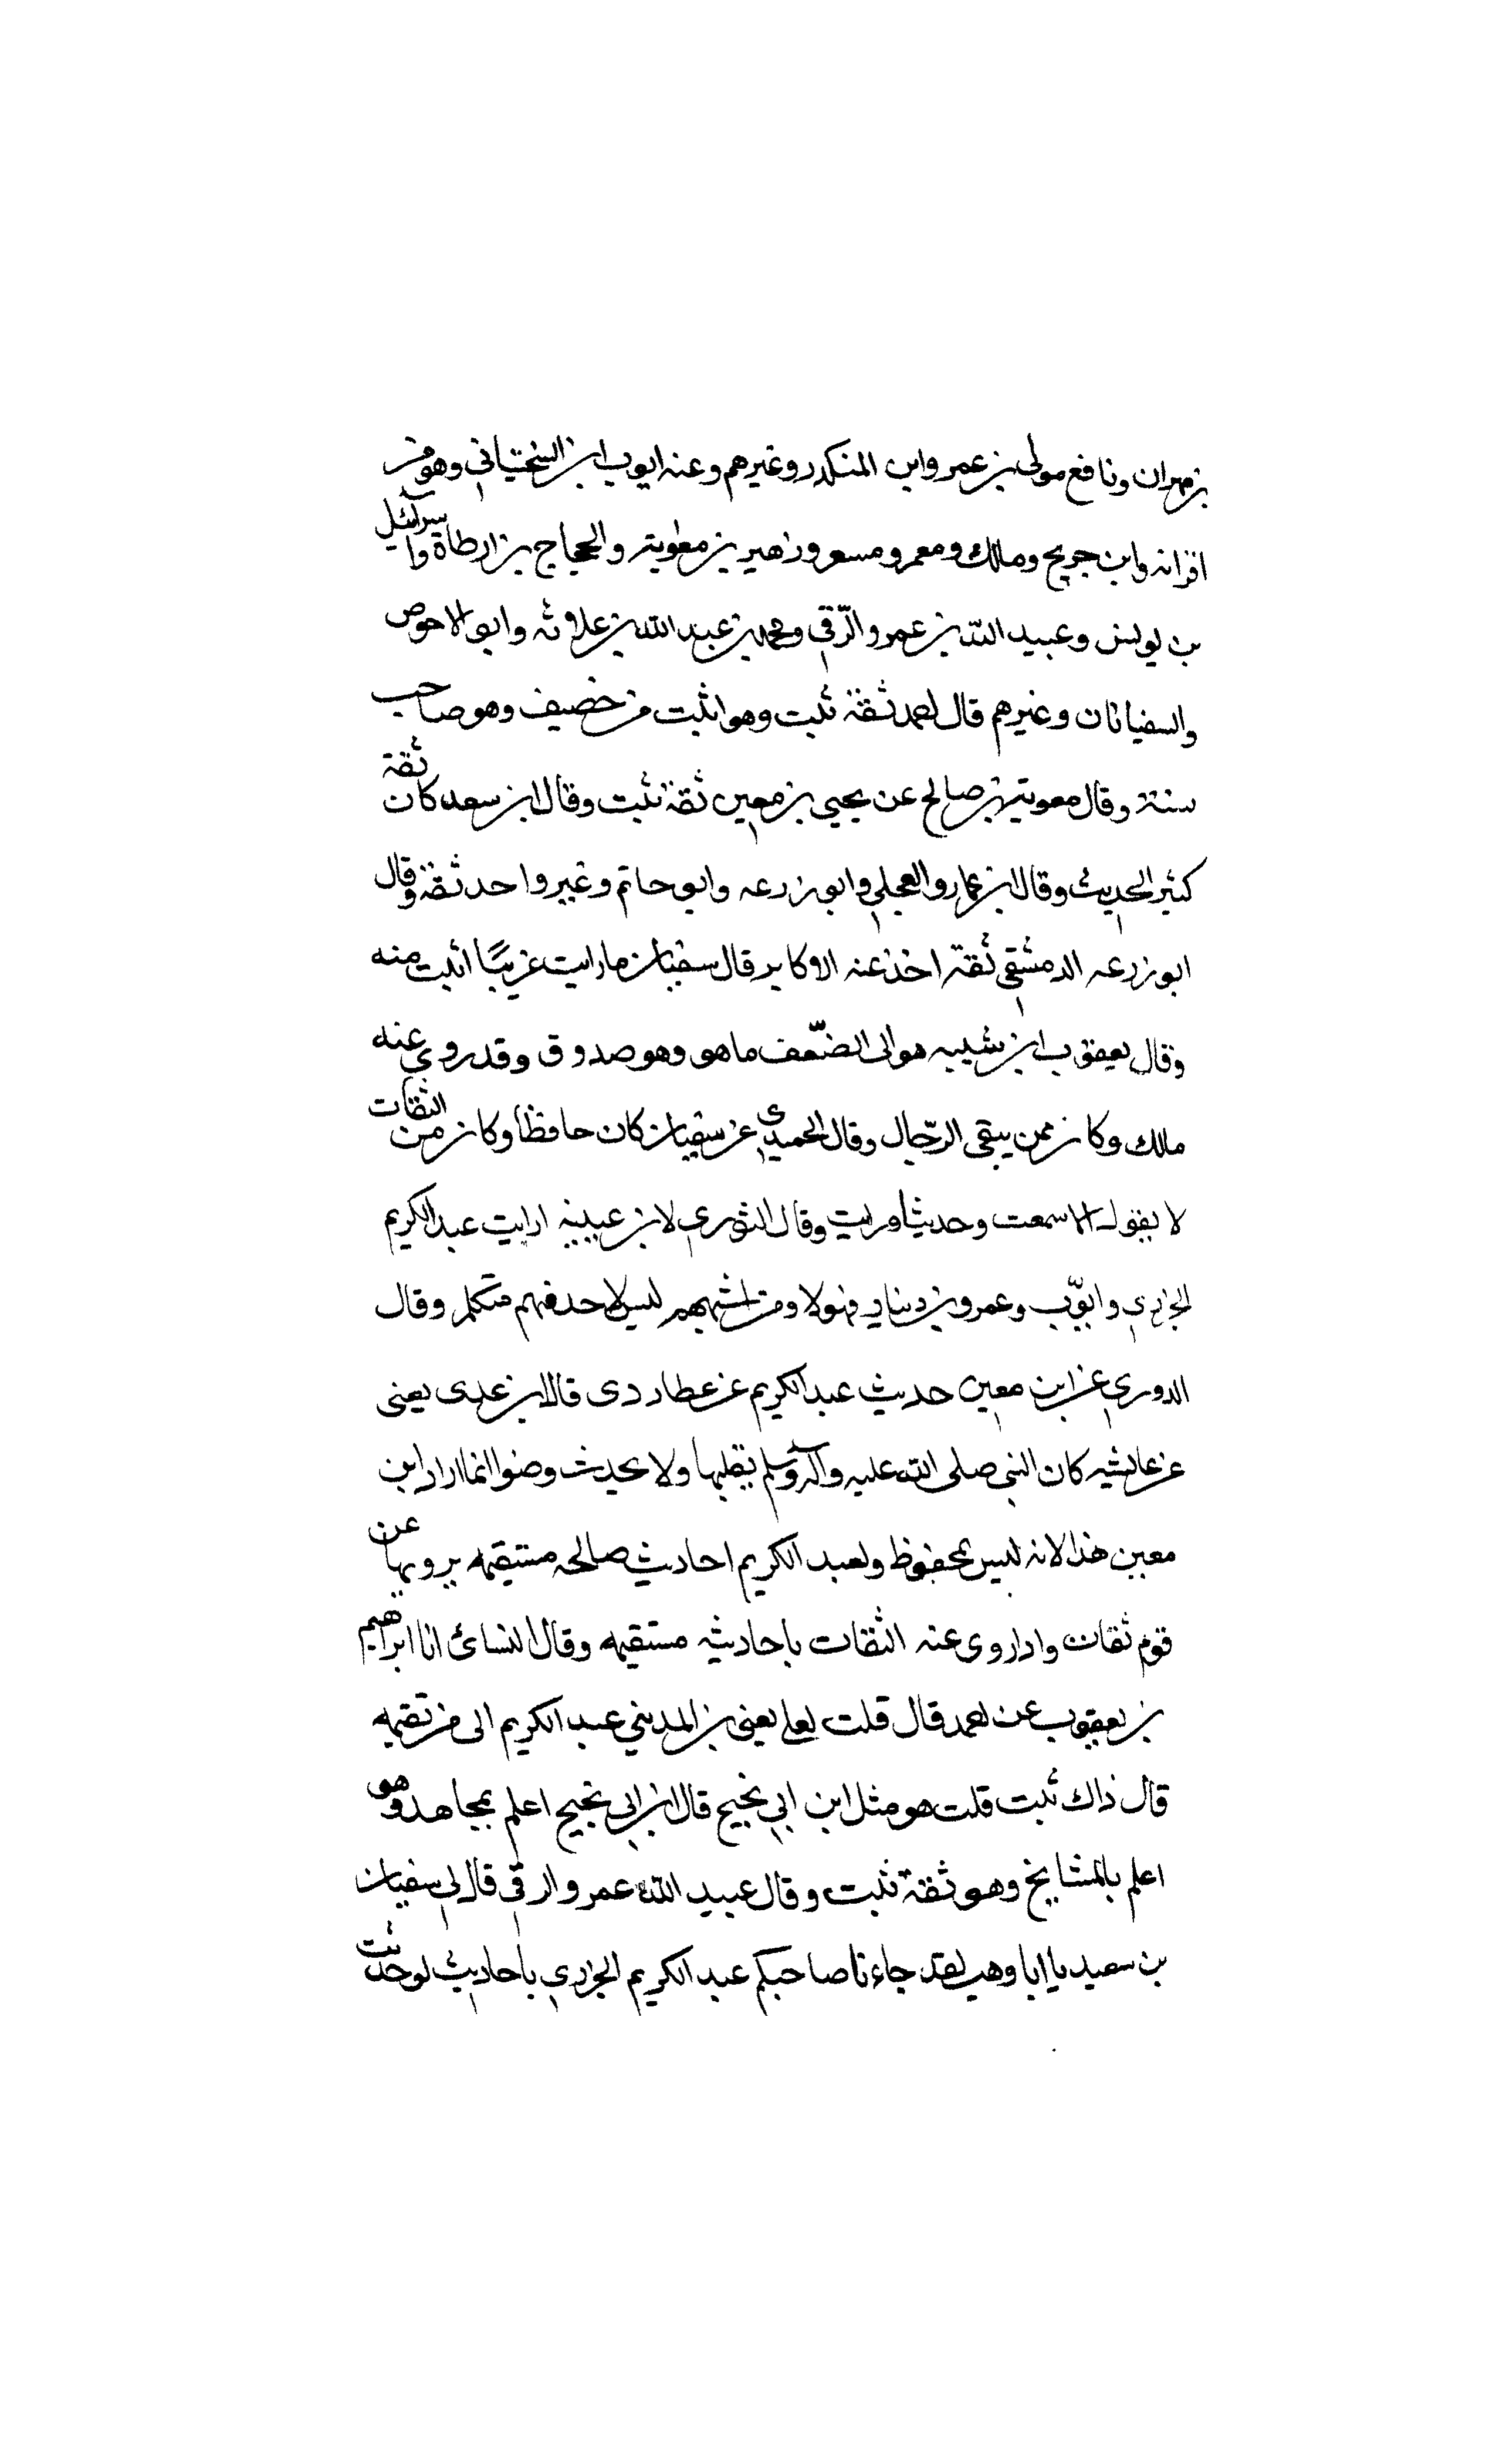 بن مهران ونافع مولى بن عمر وابن المنكدر وغيرهم وعنه ايوب ابن السختياني وهو من
اقرانه وابن جريج ومالك ومعمر ومسعر وزهير بن معاوية والحجاج بن ارطاة واسرائيل
بن يونس وعبيد الله بن عمرو الرّقي ومحمد بن عبد الله بن علاثه وابو الاحوص
والسفيانان وغيرهم قال احمد ثقة ثبت وهو اثبت من خصيف وهو صاحب
سنة وقال معوية بن صالح عن يحيى بن معين ثقة ثبت وقال ابن سعد كان ثقة
كثير الحديث وقال ابن عمار والعجلي وابو زرعه وابو حاتم وغير واحد ثقة وقال
ابو زرعه الدمشقي ثقة اخذ عنه الاكابر قال سفيان ما رايت غريبًا اثبت منه
وقال يعقوب ابن شيبه هو الى الضّعف ما هو وهو صدوق وقد روى عنه
مالك وكان ممن ينتقي الرّجال وقال الحميدي عن سفيان كان حافظا وكان من الثقات
لا يقول الا سمعت وحدثنا ورايت وقال الثوري لابن عيينه ارايت عبد الكريم
الجزري وايوّب وعمرو بن دينار فهولا ومن اشبههم ليس لاحد فيهم متكلم وقال
الدوري عن ابن معين حديث عبد الكريم عن عطا ردى قال ابن عدى يعنى
عن عائشه كان النبي صلى الله عليه وآله وسلم يقبلها ولا يحدث وضوا انما اراد ابن
معين هذا لانه ليس بمحفوظ ولعبد الكريم احاديث صالحه مستقيمه يرويها عن
قوم ثقات واذا روى عنه الثقات باحاديثه مستقيمه وقال النسائ انا ابراهيم
بن يعقوب عن احمد قال قلت لعلي يعنى بن المديني عبد الكريم الى من تقيمه
قال ذاك ثبت قلت هو مثل ابن ابي نجيح قال ابن ابي نجيح اعلم بمجاهد وهو
اعلم بالمشايخ وهو ثقة ثبت وقال عبيد الله عمرو الرقي قال لي سفيان
بن سعيد يا ابا وهب لقد جاءنا صاحبكم عبد الكريم الجزري باحاديث لو حدثت